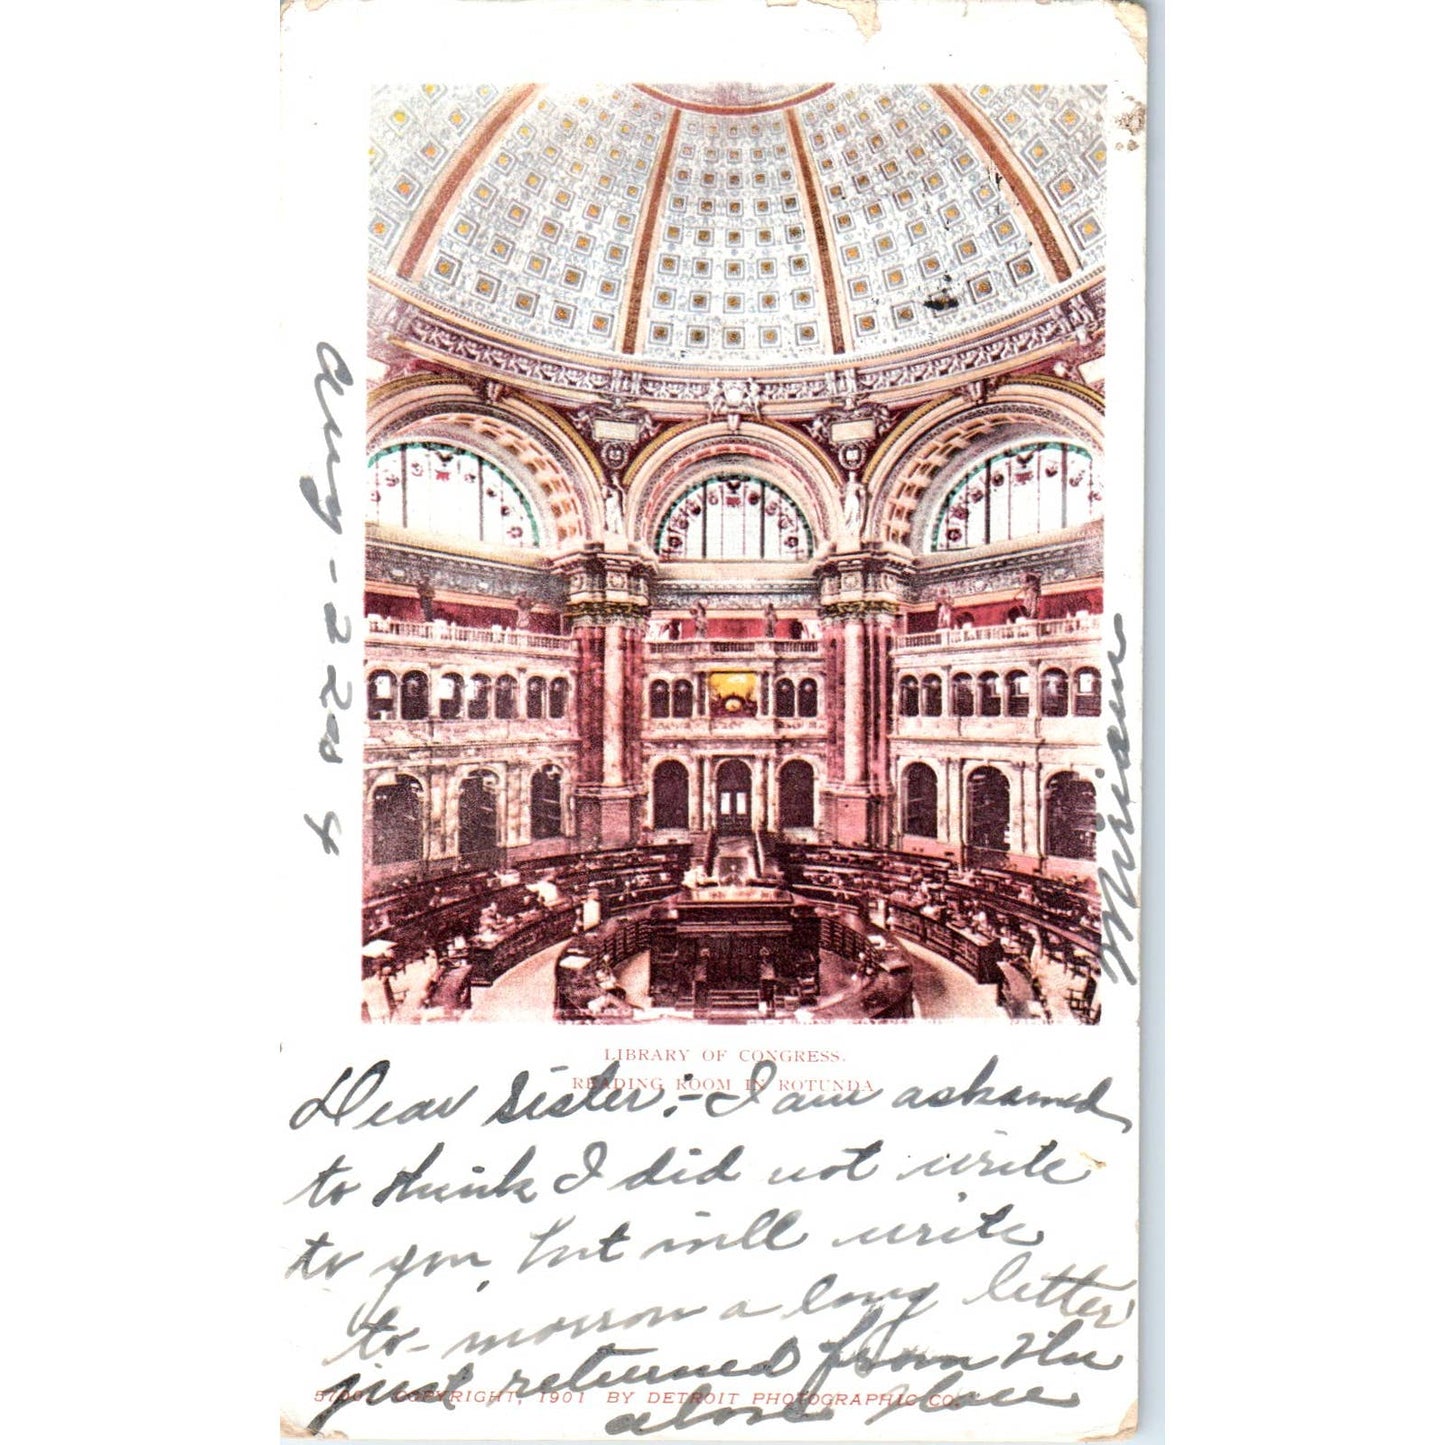 Aug - 22nd 4
Miriam
LIBRARY OF CONGRESS.
READING ROOM IN ROTUNDA
Dear Sister:- I am ashamed
to think I did not write
to you, but will write
to-morrow a long letter
just returned from the
above place
COPYRIGHT, 1901 BY DETROIT PHOTOGRAPHIC CO.